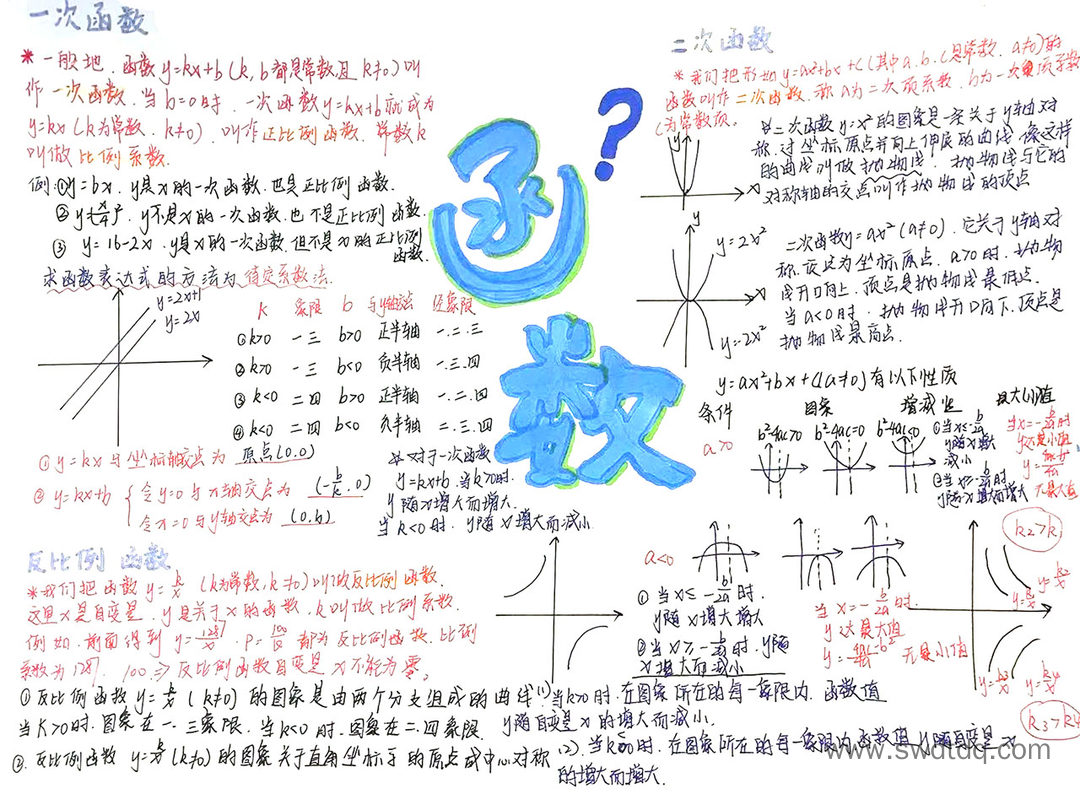 一次函数
* 一般地，函数y=kx+b(k,b都是常数且k≠0)叫
作一次函数，当b=0时，一次函数y=kx+b就成为
y=kx(k为常数，k≠0)，叫作正比例函数，常数k
叫做比例系数.
例:①y=bx，y是x的一次函数，也是正比例函数.
y不是x的一次函数，也不是正比例函数
③ y=16-2x，y是x的一次函数，但不是x的正比例
函数.
求函数表达式的方法为
y=2x+1
y=2x
k 象限 b
①k>0 一三 b>0 正半轴 一.二.三
②k>0 一三 b<0 负半轴 一.三.四
③k<0 二四 b>0 正半轴 一.二.四
④k<0 二四 b<0 负半轴 二.三.四
①y=kx与坐标轴交点为 原点(0,0)
②y=kx+b
令y=0与x轴交点为 (-b/k,0)
令x=0与y轴交点为 (0,b)
对于一次函数
y=kx+b，当k>0时，
y随x增大而增大.
当k<0时，y随x增大而减小
反比例函数
*我们把函数y=k/x(k为常数,k≠0)叫做反比例函数.
这里x是自变量，y是关于x的函数，k叫做比例系数.
例如，前面得到
都为反比例函数，比例
反比例函数自变量x不能为零。
①反比例函数y=k/x(k≠0)的图象是由两个分支组成的曲线
当k>0时,图象在一、三象限，当k<0时,图象在二.四象限
②.反比例函数y=k/x(k≠0)的图象关于直角坐标系的原点成中心对称
(1)当k>0时.在图象所在的每一象限内，函数值
y随自变量x的增大而减小.
(2).当k<0时.在图象所在的每一象限内函数值y随自变量x
的增大而增大.
函数
?
二次函数
*我们把形如y=ax²+bx+c(其中a,b,c是常数，a≠0)的
函数叫作二次函数，称a为二次项系数，b为一次项系数
c为常数项。
二次函数y=x²的图象是一条关于y轴对
称，过坐标原点并向上伸展的曲线，像这样
的曲线叫做抛物线，抛物线与它的
对称轴的交点叫作抛物线的顶点
y
x
y
x
y=2x²
y=-2x²
二次函数y=ax²(a≠0)，它关于y轴对
称，顶点为坐标原点，a>0时，抛物
线开口向上，顶点是抛物线最低点.
当a<0时，抛物线开口向下,顶点是
抛物线最高点.
y=ax²+bx+c(a≠0)有以下性质
条件 图象 增减性 最大小值
a>0
b²-4ac>0 b²-4ac=0 b²-4ac<0
①当x≤-b/2a时
y随x增大
减小
②当x≥-b/2a时
y随x增大而增大
当x=-b/2a时
无最大值
a<0
①当x≤-b/2a时.
y随x增大增大
②当x≥-b/2a时.y随
x增大而减小
当x=-b/2a时.
y达最大值
无最小值
k₂>k₁
k₃>k₄
www.swdtdq.com